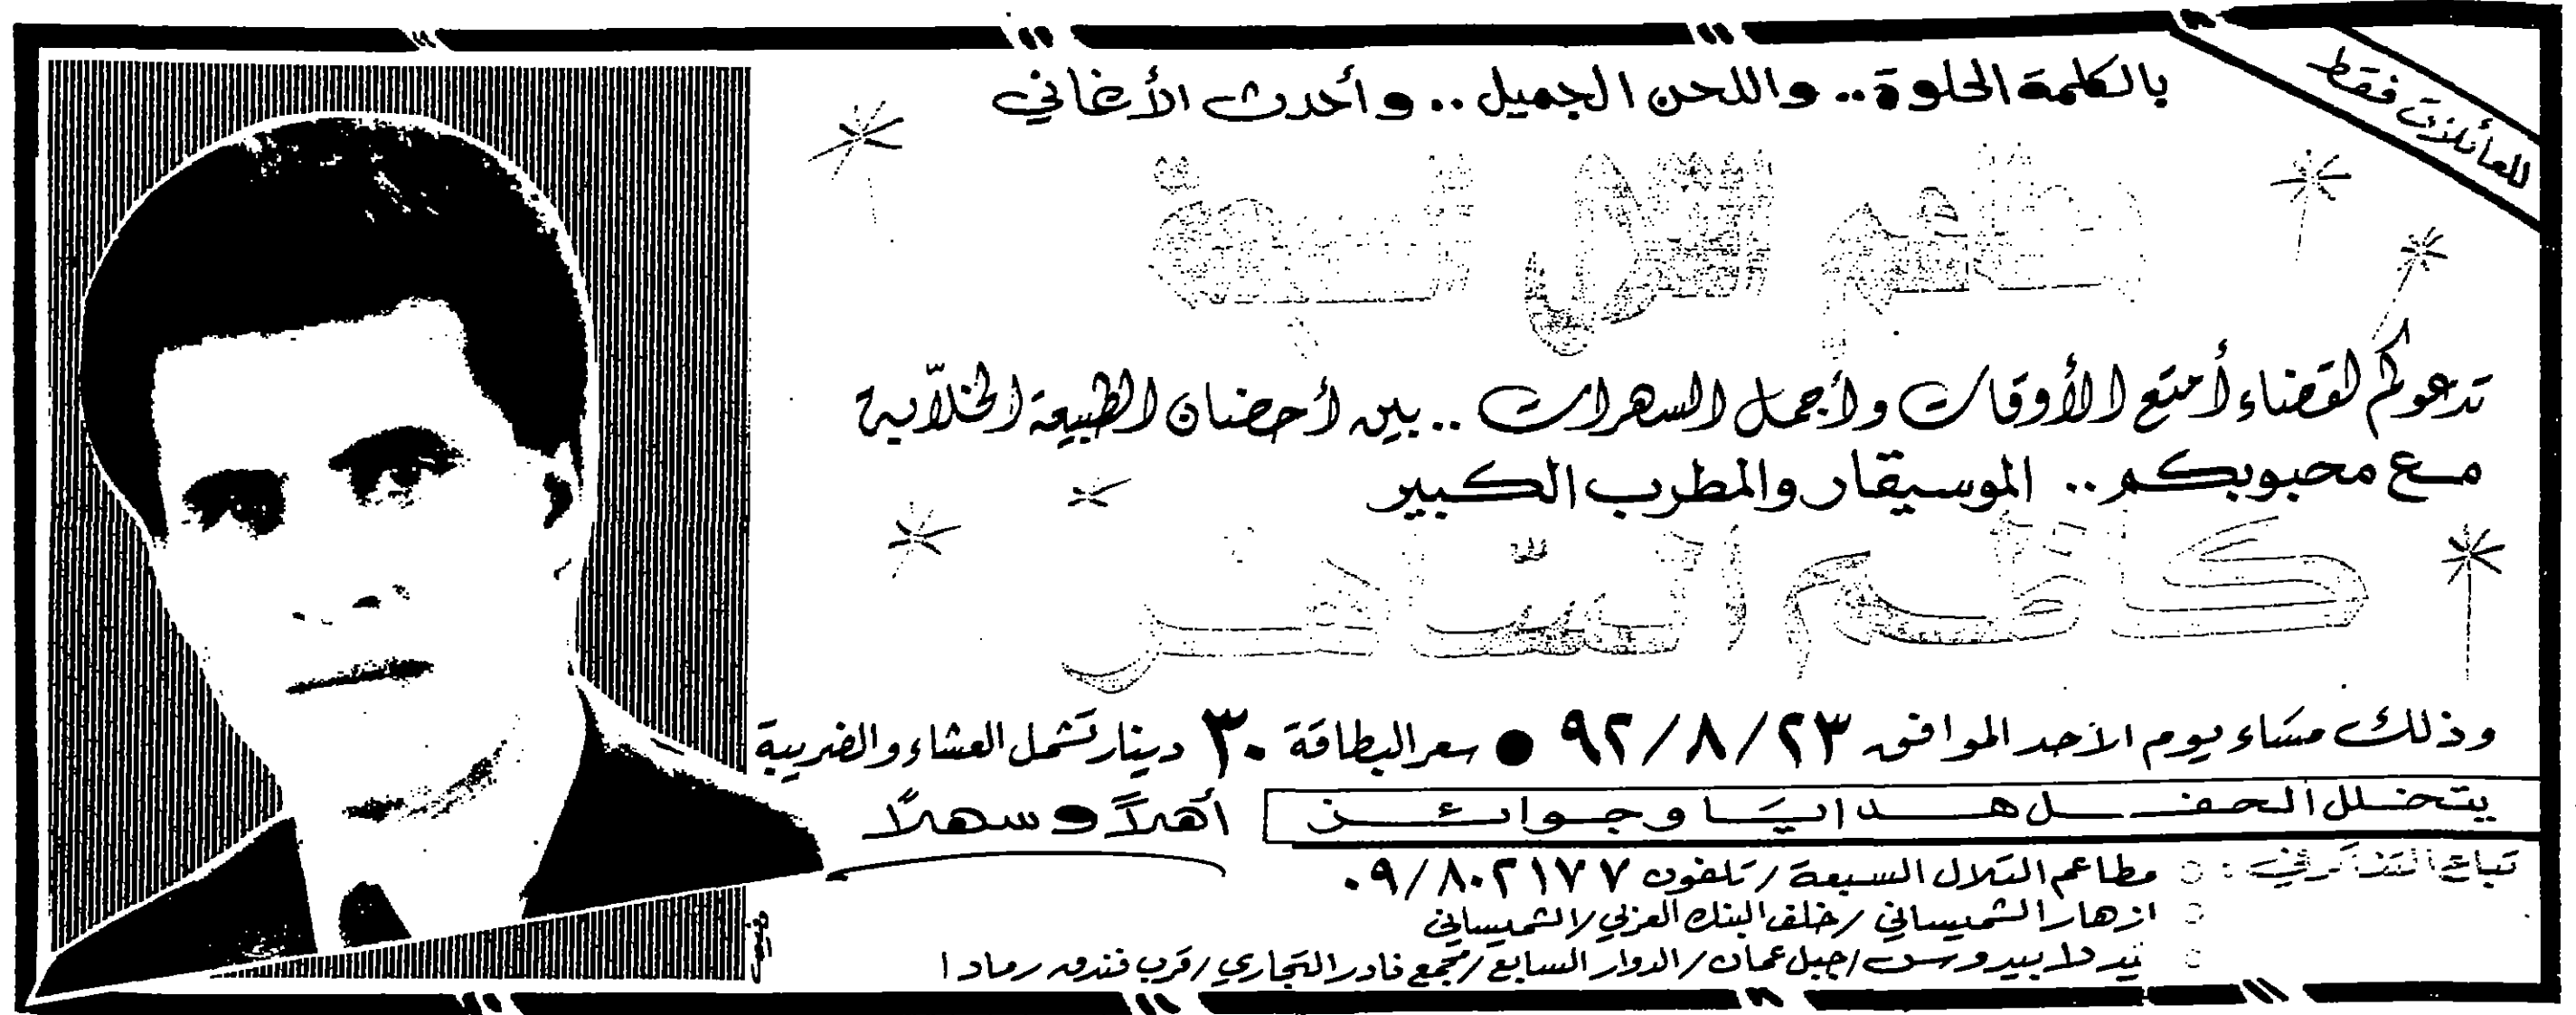 للعائلات فقط
بالكلمة الحلوة.. واللحن الجميل.. وأحدث الأغاني
مطاعم التلال السبعة
تدعوكم لقضاء أمتع الأوقات وأجمل السهرات.. بين أحضان الطبيعة الخلاّبة
مع محبوبكم.. الموسيقار والمطرب الكبير
كاظم السّاهر
وذلك مساء يوم الأحد الموافق ٩٢/٨/٢٣ ● سعر البطاقة ٣٠ دينار تشمل العشاء والضريبة
يتخلل الحفل هدايا وجوائز
أهلاً وسهلاً
تباع التذاكر في: ○ مطاعم التلال السبعة / تلفون ٠٩/٨٠٢١٧٧
○ ازهار الشميساني / خلف البنك العربي / الشميساني
○ بيدروس / جبل عمان / الدوار السابع / مجمع نادر التجاري / قرب فندق رمادا